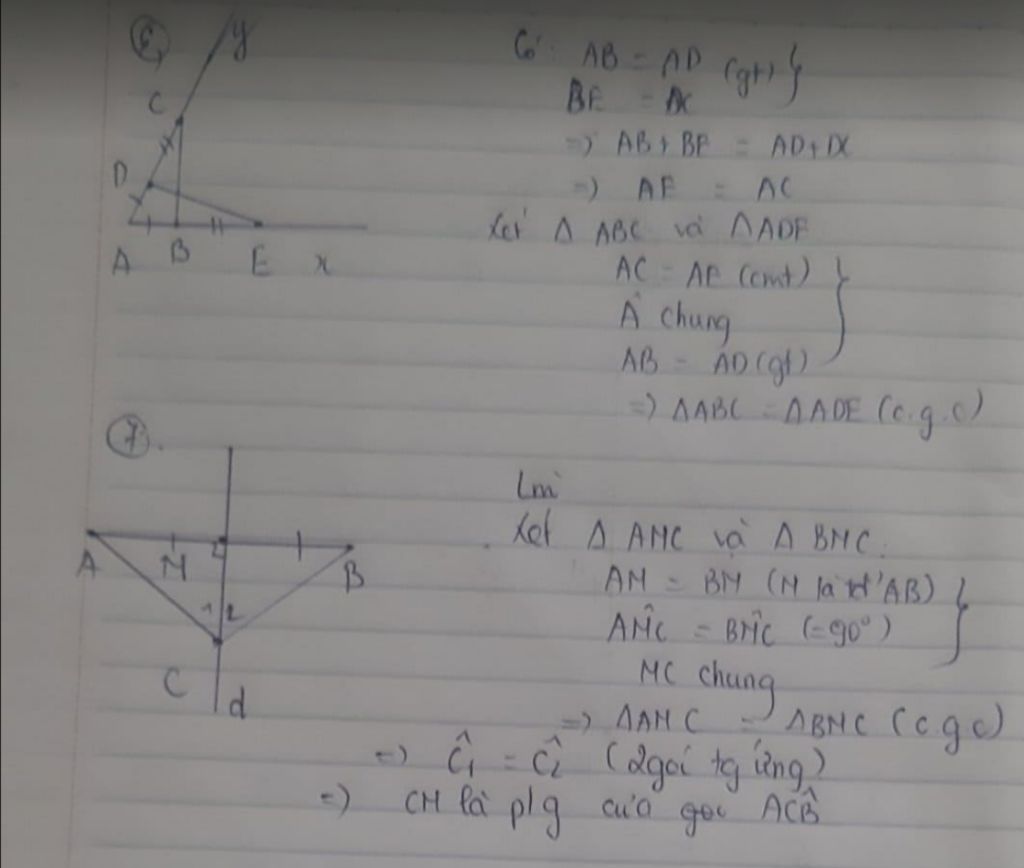 6,
y
C
D
A B E x
Có: AB = AD (gt)
BE = DC
=> AB + BE = AD + DC
=> AE = AC
Xét Δ ABC và ΔADE
AC = AE (cmt)
Â chung
AB = AD (gt)
=> ΔABC = ΔADE (c.g.c)
7.
A M B
1 2
C d
Cm
Xét Δ AMC và Δ BMC.
AM = BM (M là tđ AB)
AM̂C = BM̂C (=90°)
MC chung
=> ΔAMC = ΔBMC (c g c)
=> Ĉ1 = Ĉ2 (2 góc tg ứng)
=> CM là p/g của góc AĈB